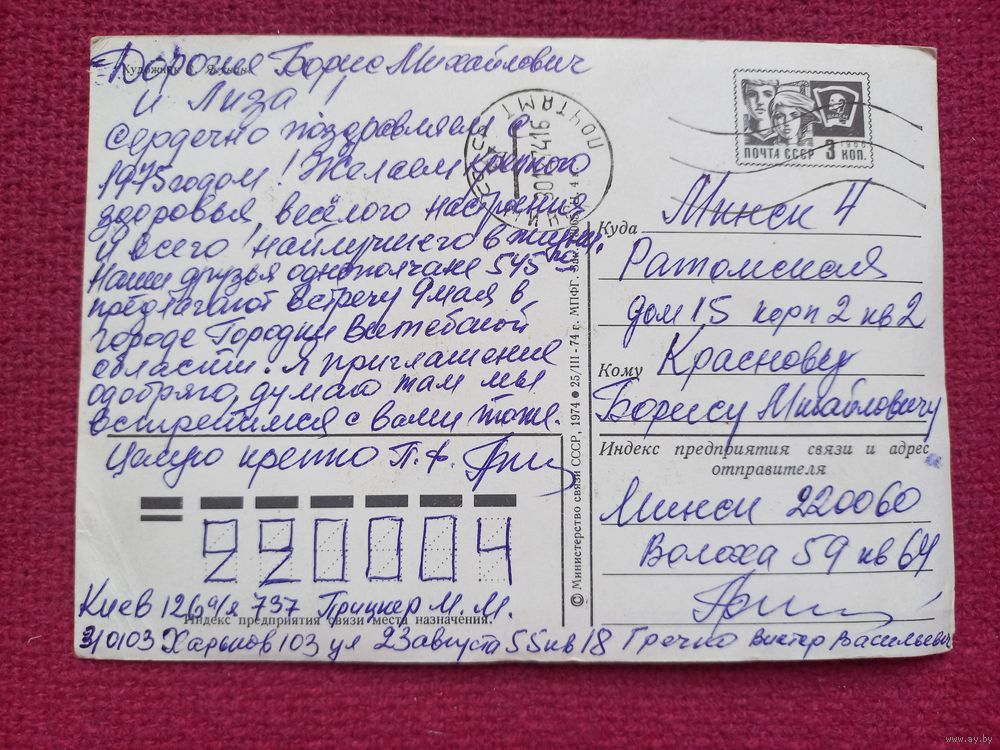 Дорогие Борис Михайлович
и Лиза!
сердечно поздравляем с
1975 годом! Желаем крепкого
здоровья весёлого настроения
и всего наилучшего в жизни.
Наши друзья однополчане 545
предлагают встречу 9 мая в
городе Городки Витебской
области. Я приглашение
одобряю, думаю там мы
встретимся с вами тоже.
Целую крепко П. Ф.
Художник
ПОЧТАМТ
ПОЧТА СССР 3 КОП.
1966
Куда Минск 4
Ратомская
дом 15 корп 2 кв 2
Кому Краснову
Борису Михайловичу
Индекс предприятия связи и адрес
отправителя
Минск 220060
Волоха 59 кв 64
© Министерство связи СССР, 1974 ● 25/III - 74 г. МПФГ.
220004
Киев 126 а/я 737 Прицкер М. М.
Индекс предприятия связи места назначения.
310103 Харьков 103 ул 23 августа 55 кв 18 Гречко Виктор Васильевич
www.ay.by